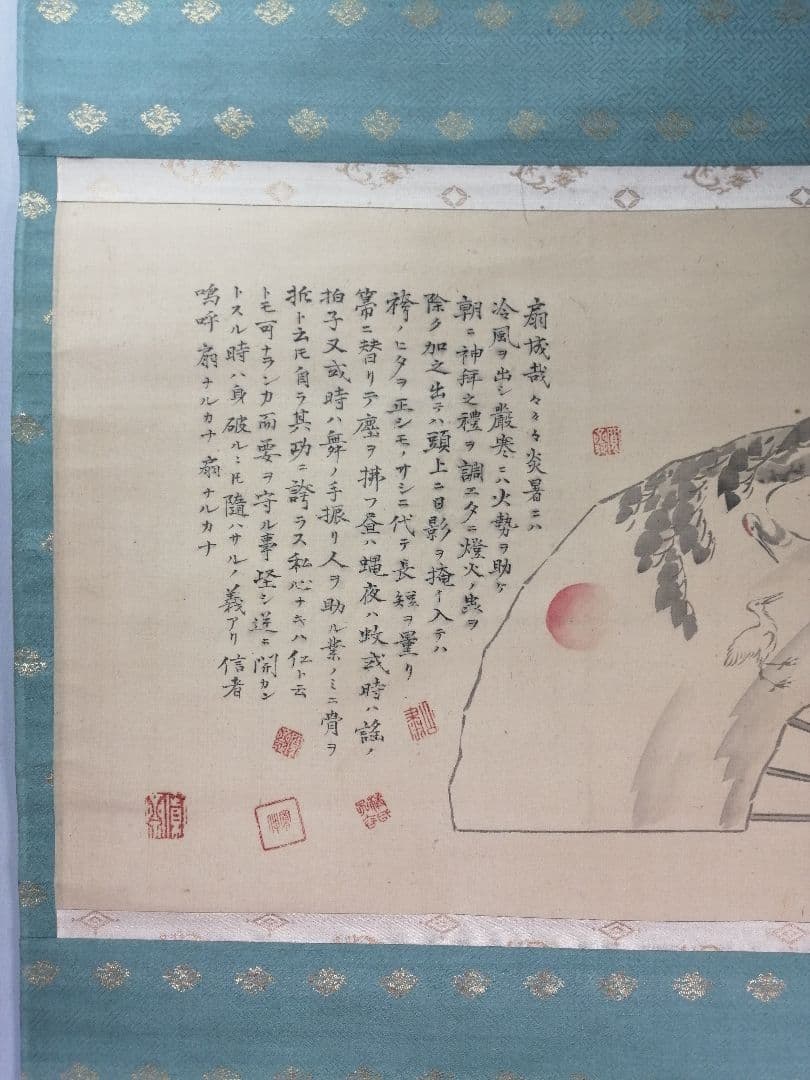 扇成哉々々々炎暑ニハ
冷風ヲ出シ嚴寒ニハ火勢ヲ助ケ
朝ニ神拜之禮ヲ調エタニ燈火ノ虫ヲ
除ク加之出テハ頭上ニ日影ヲ掩イ入テハ
袴ノヒタヲ正シモノサシニ代テ長短ヲ量リ
箒ニ替リテ塵ヲ拂フ昼ハ蝿夜ハ蚊或時ハ謡ノ
拍子又或時ハ舞ノ手振リ人ヲ助ル業ノミニ費ヲ
折ト云𪜈自ラ其功ニ誇ラス私心ナキハ仁ト云
トモ可ナランカ而要ヲ守ル事堅シ逆ニ開カン
トスル時ハ身破ルミ𪜈隨ハサルノ義アリ信者
嗚呼扇ナルカナ扇ナルカナ